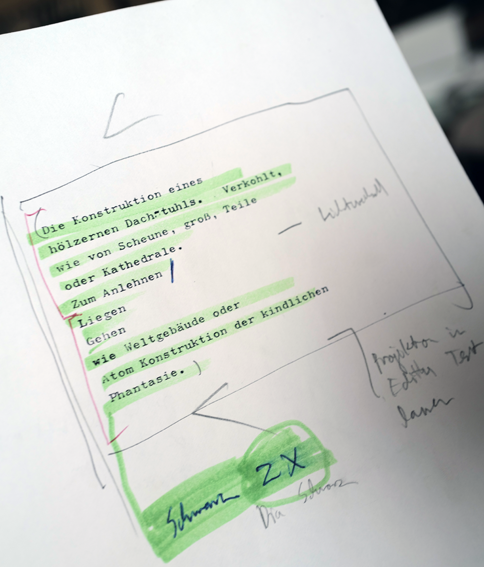 (Die Konstruktion eines
hölzernen Dach-tuhls. Verkohlt,
wie von Scheune, groß, Teile
oder Kathedrale.
Zum Anlehnen
Liegen
Gehen
wie Weltgebäude oder
Atom Konstruktion der kindlichen
Phantasie. )
Projektion in
Text
Schwarz 2X
Dia Schwarz